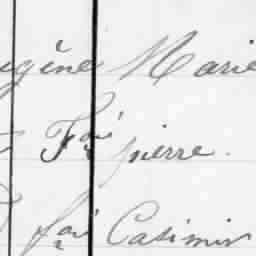 ugêne Marie
Fçois pierre.
fçois Casimir